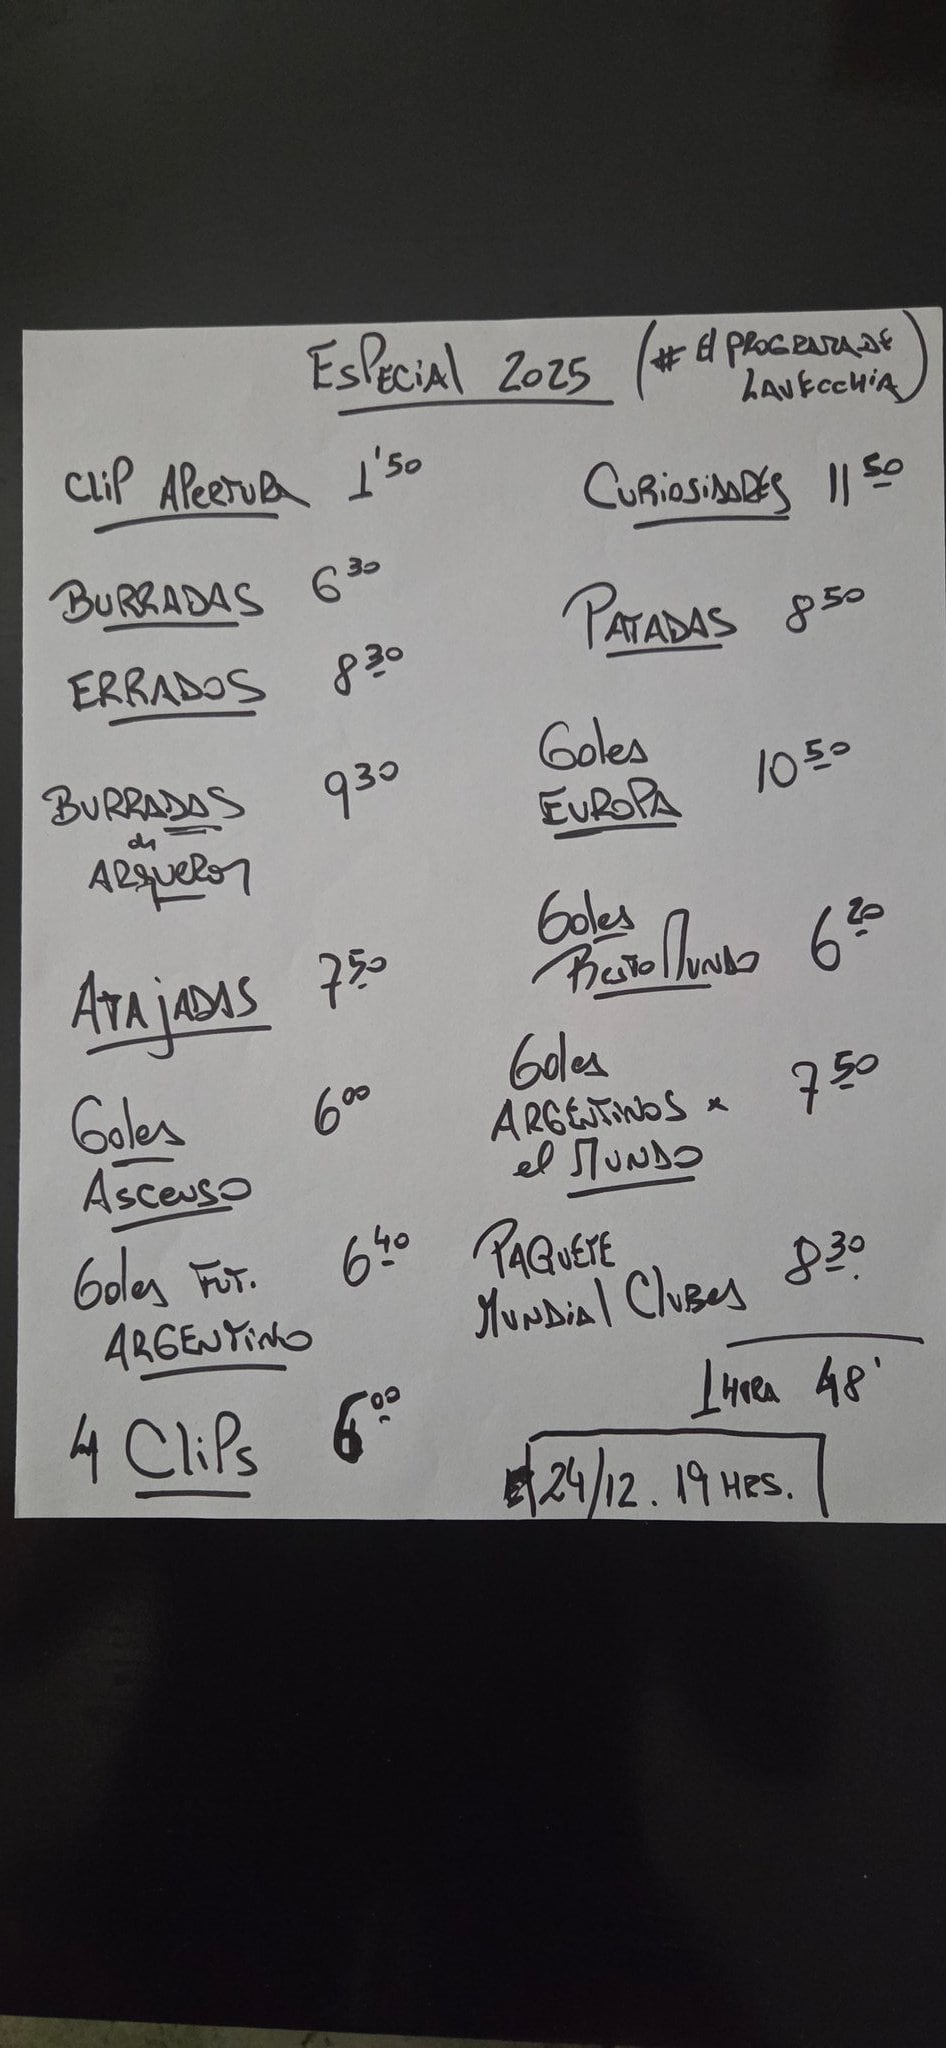 ESPECIAL 2025 (# El PROGRAMA DE
LAVECCHIA)
CLIP APERTURA 1'50
BURRADAS 6 30
ERRADOS 8 30
BURRADAS 9 30
de
ARQUEROS
ATAJADAS 7 50
Goles 6 00
ASCENSO
Goles FUT. 6 40
ARGENTINO
4 Clips 6 00
CURIOSIDADES 11 50
PATADAS 8 50
Goles
EUROPA 10 50
Goles
Resto MUNDO 6 20
Goles
ARGENTINOS x 7 50
el MUNDO
PAQUETE
MUNDIAL Clubes 8 30
1 HORA 48'
24/12. 19 HRS.